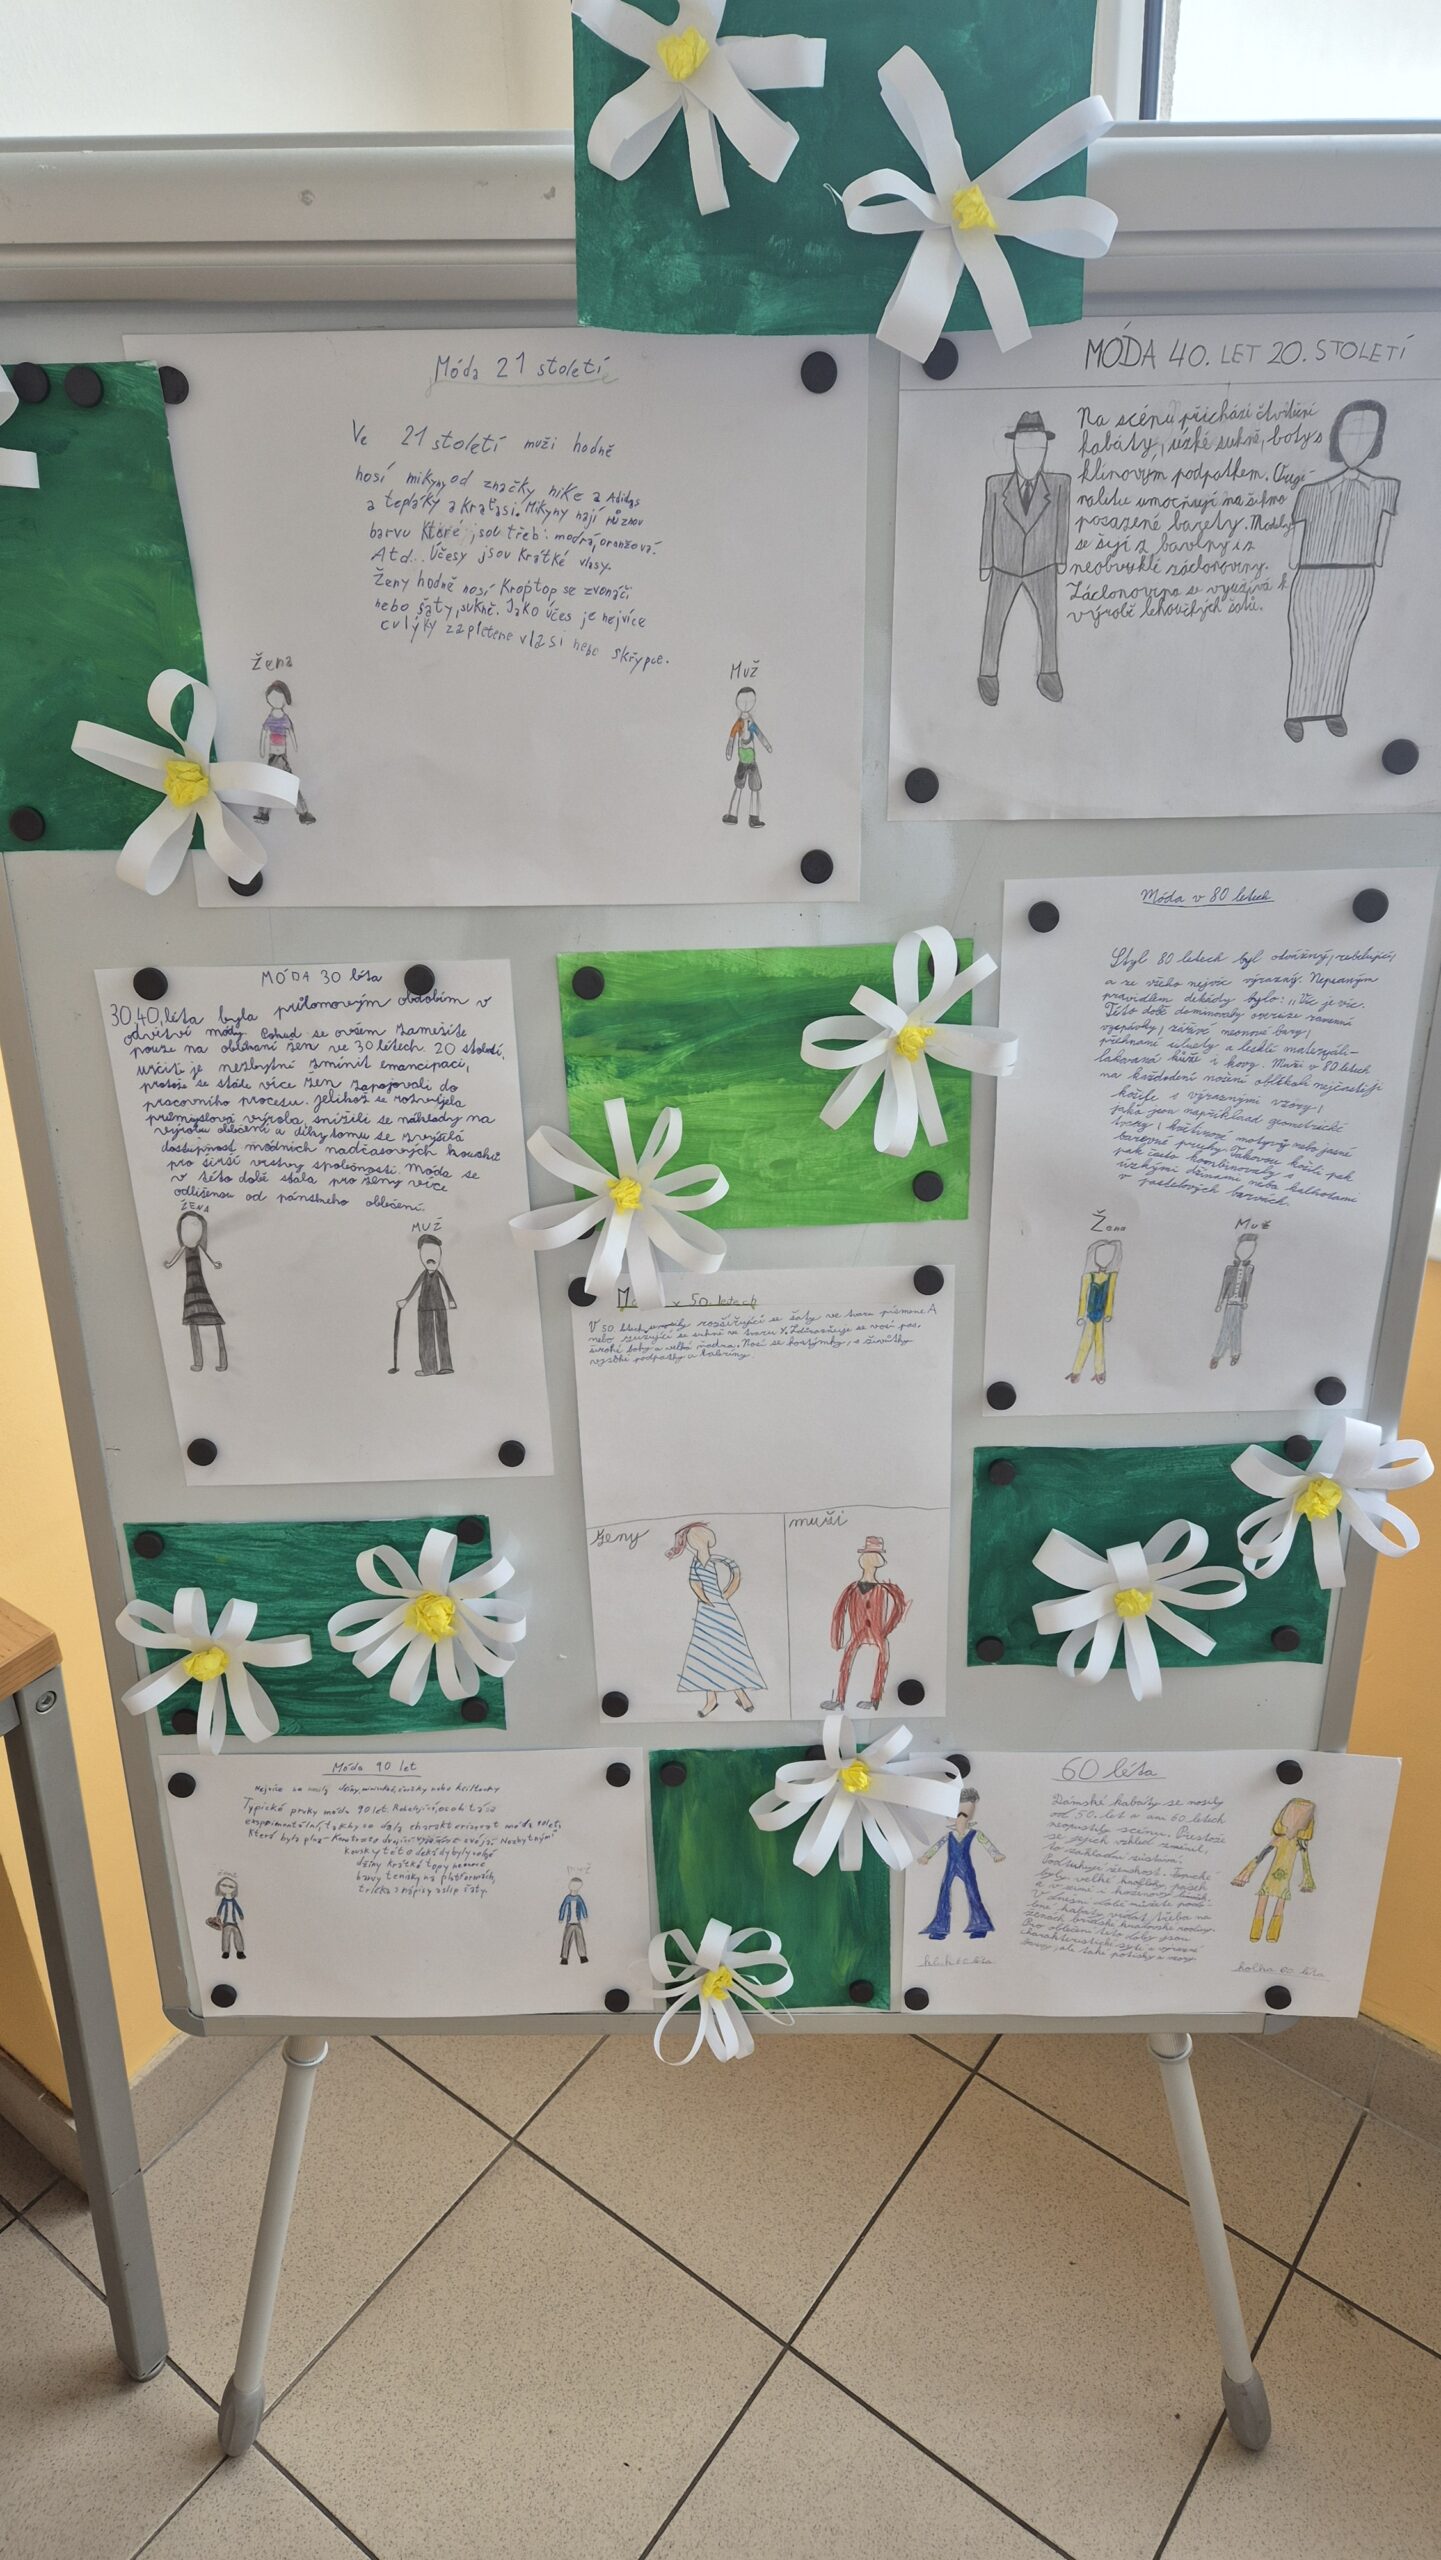 Móda 21 století
Ve 21 století muži hodně
nosí mikyny od značky nike a Adidas
a tepláky a Kraťasi. Mikyny mají různou
barvu Které jsou třeb: modrá, oranžová.
Atd... Účesy jsou Krátké vlasy.
Ženy hodně nosí Kroptop se zvonáči
nebo šaty, sukně. Jako účes je nejvíce
culýky zapletene vlasi nebo skřypce.
Žena
Muž
MÓDA 40. LET 20. STOLETÍ
Na scénu přichází čtvercení
kabáty, úzké sukně, boty s
klínovým podpatkem.
umocňují na šikmo
posazené barety. Modely
se šijí z bavlny i z
neobvyklé záclonoviny.
Záclonovina se využívá k
výrobě lehoučkých šatů.
MÓDA 30 léta
30.40. léta byla přílomovým obdobím v
odvětví módy. Pokud se ovšem zaměříte
pouze na oblékaní žen ve 30 létech. 20 století,
určitě je nezbytné zmínit emancipaci,
protože se stále více žen zapojovali do
pracovního procesu. Jelikož se rozvíjela
průmyslová výroba, snížili se náklady na
výrobu oblečení a díky tomu se zvýšila
dostupnost módních nadčasových kousků
pro širší vrstvy společnosti. Móda se
v této době stála pro ženy více
odlišenou od pánského oblečení.
ŽENA
MUŽ
Móda v 80 letech
Styl 80 letech byl odvážný, rebelující,
a ze všeho nejvíc výrazný. Nepsaným
pravidlem dekády bylo: „Víc je víc.
Této době dominovaly oversize ramenní
vycpávky, zářivé neonové barvy,
přehnané siluety a lesklé materiáli-
lakovaná kůže i kovy. Muži v 80 letech
na každodení nošení oblékali nejčastěji
košile s výraznými vzory,
jako jsou například geometrické
tvary, květinové motyvy nebo jasné
barevné pruhy. Takovou košili pak
pak často kombinovaly s
úzkými džínami neba kalhotami
v pastelových barvách.
Žena
Muž
50. letech
V 50 letech rozšiřující se šaty ve tvaru písmene A
nebo zužující se sukně ve tvaru Y. Zdůrazňuje se vosí pas,
široké boky a velká ňadra. Nosí se kostýmky, s živůtky
vysoké podpatky a kabriny.
ženy
muži
Móda 90 let
Nejvíce se nosily džíny,
Typické prvky móda 90 let.
let,
která byla plná
kousky této dekády byly
džíny krátké topy
barvy tenisky na platformách,
trička s nápisy a slip šaty.
60 léta
Dámské kabáty se nosily
od 50. let a ani 60 letech
neopustily scénu. Prestože
se jejich vzhled změnil,
to základní zůstává.
Podtrhují ženskost. Typické
byly velké knoflíky, pásek
a v zimě i kožešinový
V dnešní době můžete podo-
bné kabáty vídat třeba na
ženách britské královské rodiny.
Pro oblečení této doby jsou
charakteristické
barvy, ale také potisky a vzory
holka 60. léta